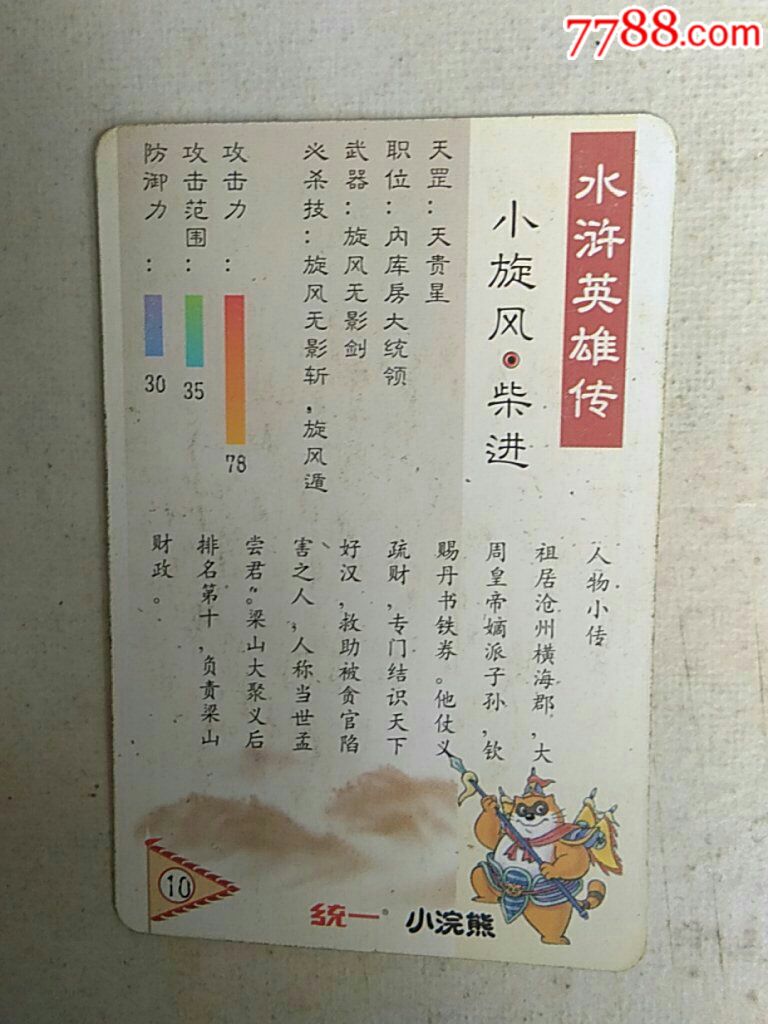 7788.com
水浒英雄传
小旋风·柴进
天罡：天贵星
职位：内库房大统领
武器：旋风无影剑
必杀技：旋风无影斩，旋风遁
攻击力：
78
攻击范围：
35
防御力：
30
人物小传
祖居沧州横海郡，大
周皇帝嫡派子孙，钦
赐丹书铁券。他仗义
疏财，专门结识天下
好汉，救助被贪官陷
害之人，人称当世孟
尝君”。梁山大聚义后
排名第十，负责梁山
财政。
10
统一®
小浣熊